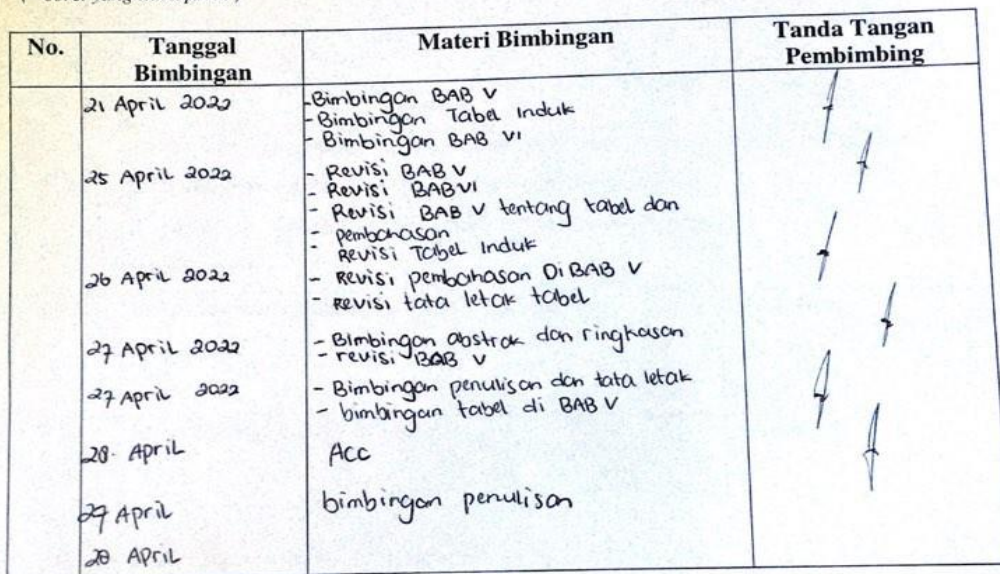 No. Tanggal Bimbingan Materi Bimbingan Tanda Tangan Pembimbing
21 April 2022 -Bimbingan BAB V
- Bimbingan Tabel Induk
- Bimbingan BAB VI
25 April 2022 - Revisi BAB V
- Revisi BAB VI
- Revisi BAB V tentang tabel dan
- pembahasan
- Revisi Tabel Induk
26 April 2022 - Revisi pembahasan Di BAB V
- Revisi tata letak tabel
27 April 2022 - Bimbingan abstrak dan ringkasan
- revisi BAB V
27 April 2022 - Bimbingan penulisan dan tata letak
- bimbingan tabel di BAB V
28. April ACC
29 April bimbingan penulisan
28 April